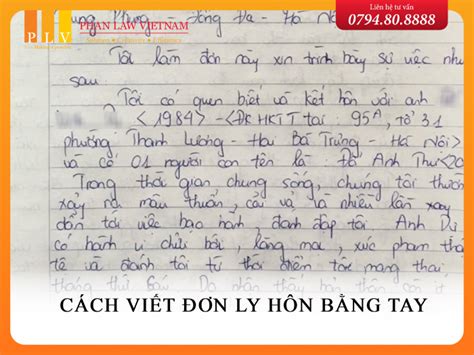 PLV
PHAN LAW VIETNAM
Solutions • Confidence • Efficiency
Liên hệ tư vấn
0794.80.8888
Phụng - Đống Đa - Hà Nội
Tôi làm đơn này xin trình bày sự việc như
sau:
Tôi có quen biết và kết hôn với anh
<1984> - <ĐKHKTT tại: 95A, tổ 31
phường Thanh Lương - Hai Bà Trưng - Hà Nội>
và có 01 người con tên là: Đỗ Anh Thư <20
Trong thời gian chung sống, chúng tôi thường
xảy ra mâu thuẫn, cãi vã và nhiều lần xảy
dẫn tới việc bạo hành, đánh đập tôi. Anh
có hành vi chửi bới, lăng mạ, xúc phạm
tệ và đánh tôi từ thời điểm tôi mang thai
tháng thứ
CÁCH VIẾT ĐƠN LY HÔN BẰNG TAY